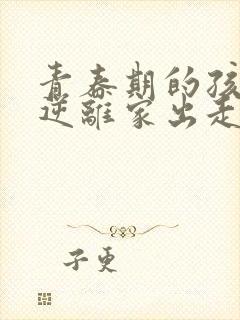 青春期的孩
逆离家出走
子更